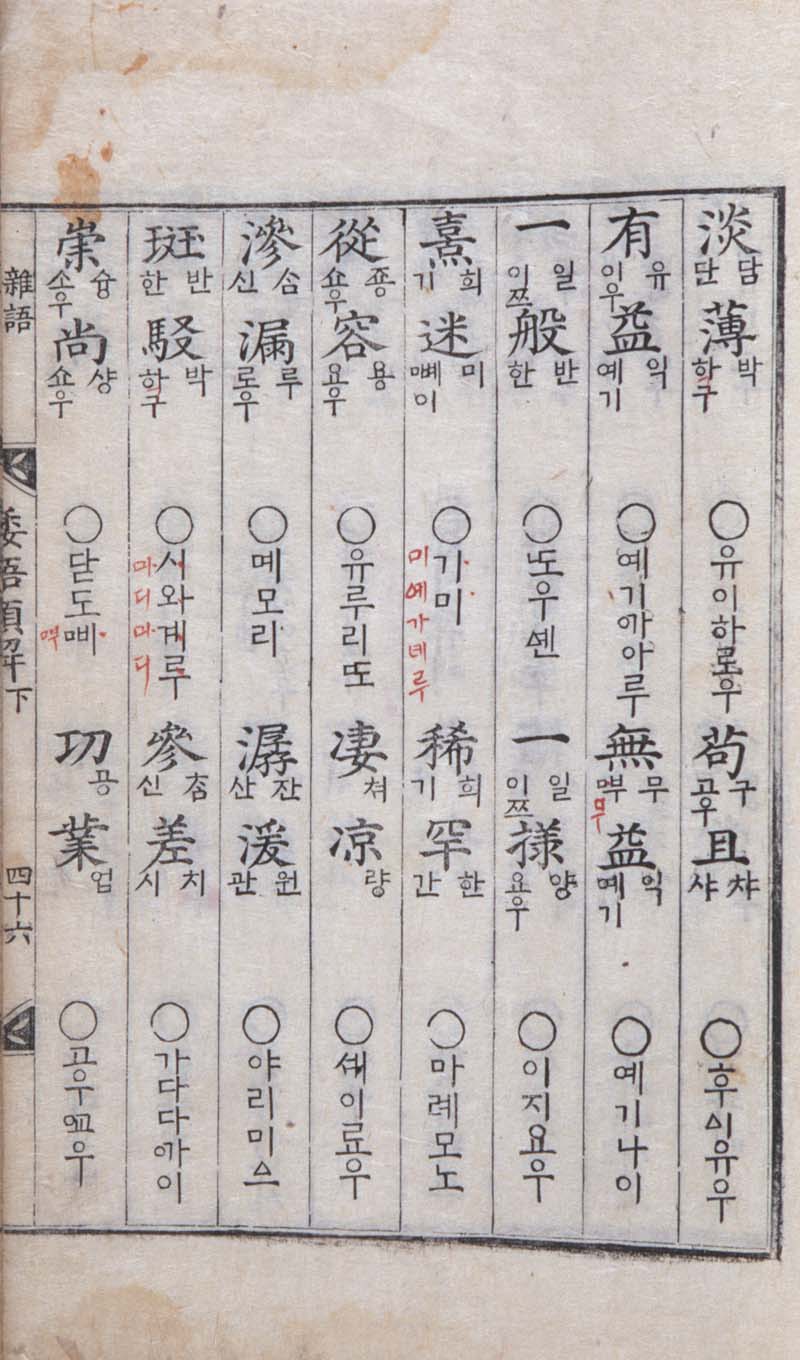 淡담단薄박하구 ○유이하로우 苟구고우且챠샤 ○후ᅀᅵ유우
有유이우益익예기 ○예기ᄭᅡ아루 無무부益익예기 ○예기나이
一일이쯔般반한 ○도우솅 一일이쯔㨾양요우 ○이지요우
熹희기迷미몌이 ○기미 미예가네루 稀희기罕한간 ○마례모노
從죵쇼우容용요우 ○유루리또 凄쳐凉량 ○셰이료우
滲ᄉᆞᆷ신漏루로우 ○메모리 潺잔산湲원관 ○야리미스
斑반한駁박하구 ○시와계루 마디마디 參ᄎᆞᆷ신差치시 ○가다다ᄭᅡ이
崇슝소우尚샹쇼우 ○닫도삐 功공業업 ○공우ᅌᅭ우
雜語 倭語類解下 四十六